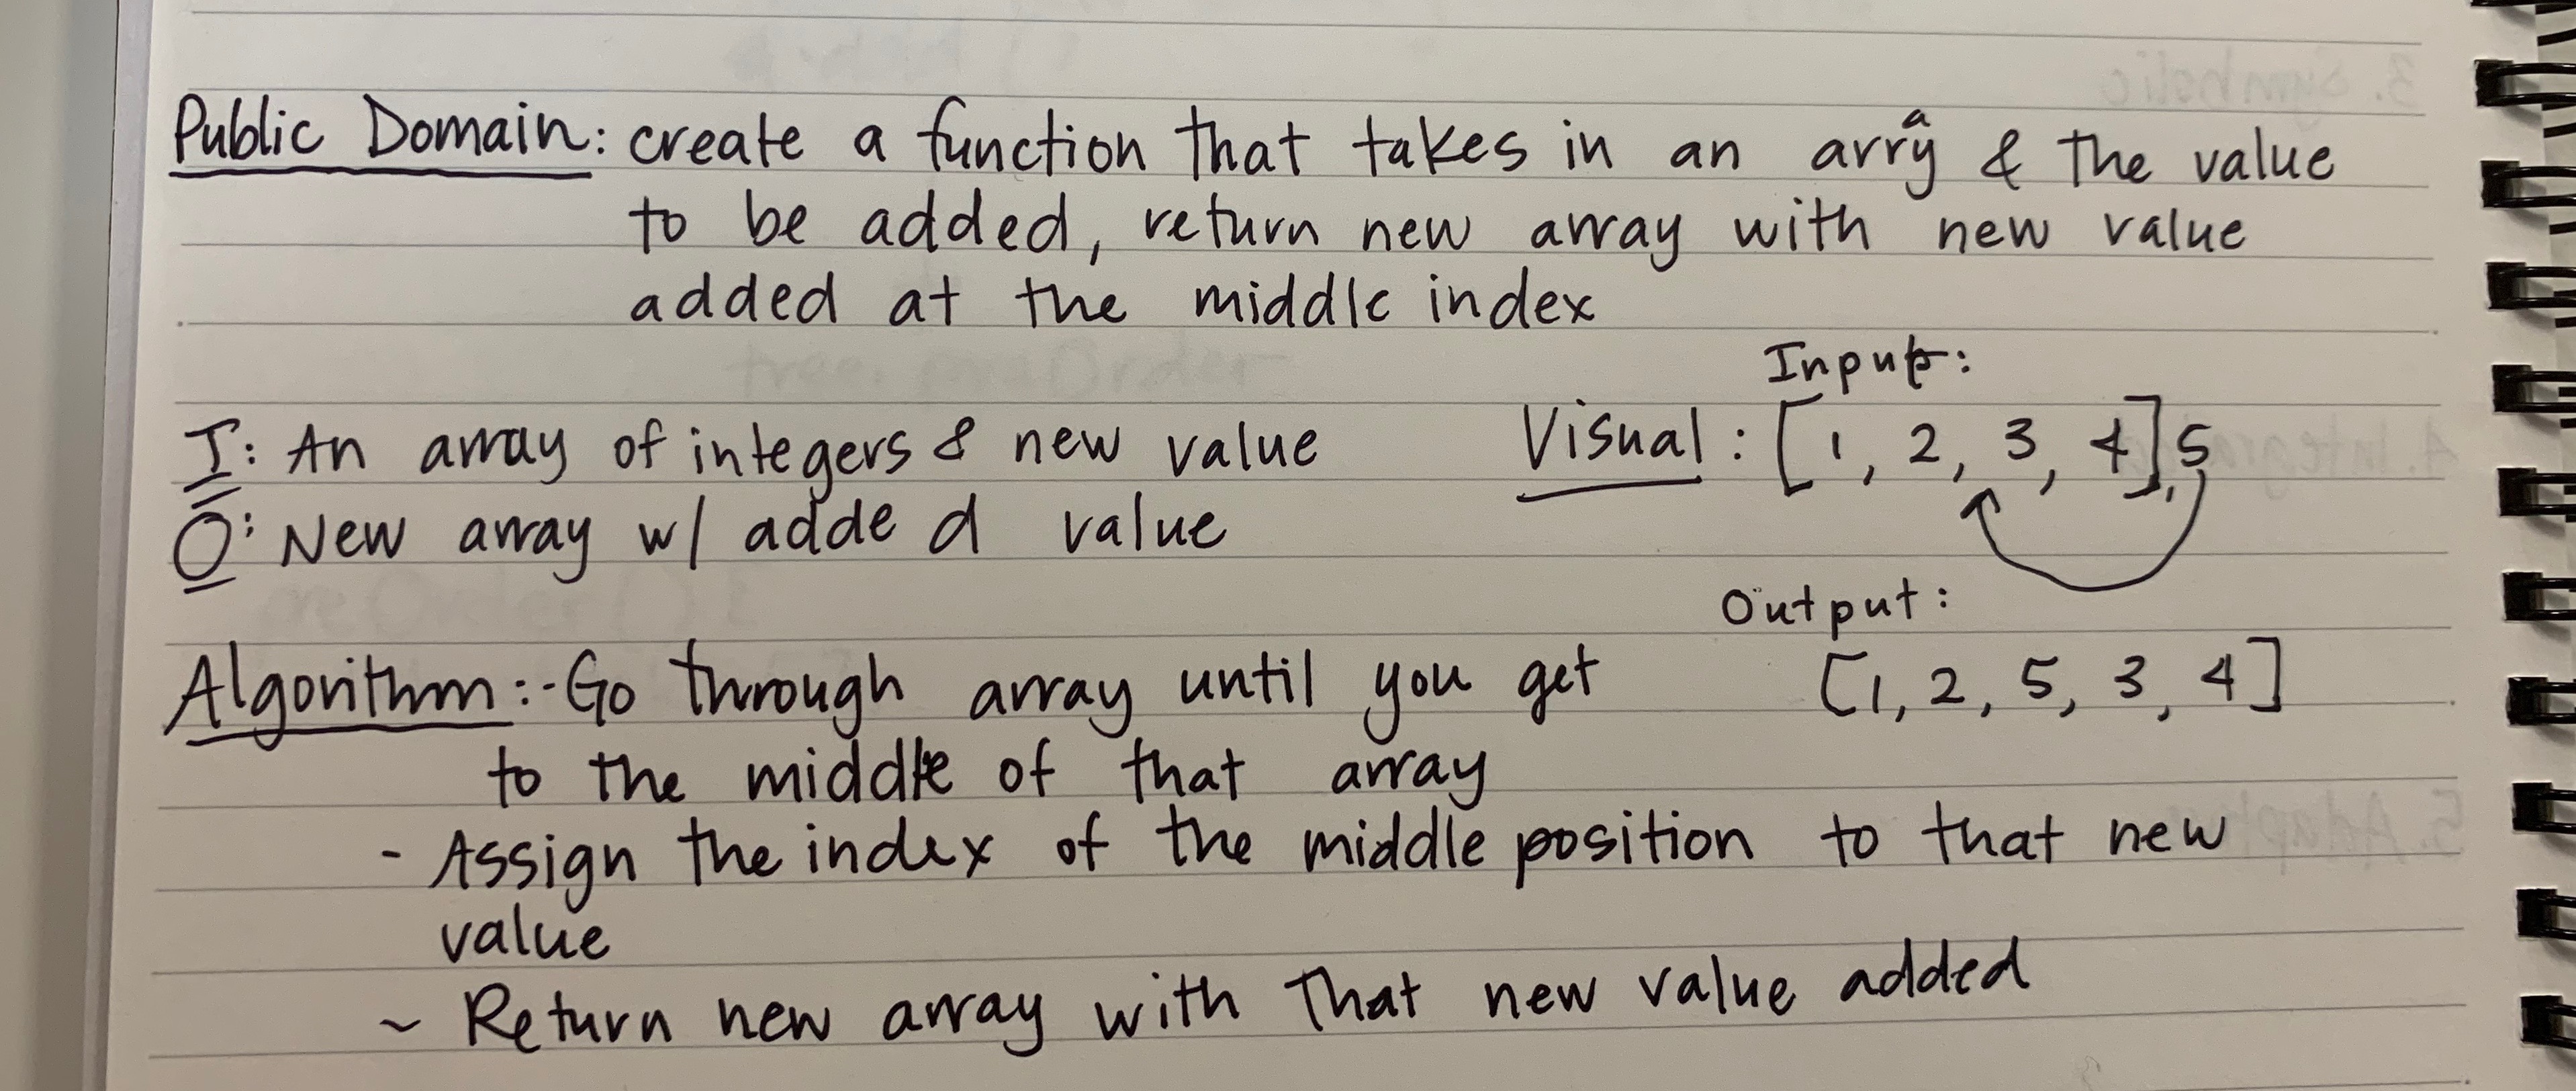 Public Domain: create a function that takes in an array & the value
to be added, return new array with new value
added at the middle index
I: An array of integers & new value
O: New array w/ added value
Visual:
Input:
[1, 2, 3, 4], 5
Output:
[1, 2, 5, 3, 4]
Algorithm: - Go through array until you get
to the middle of that array
- Assign the index of the middle position to that new
value
~ Return new array with that new value added
3. Symbolic
5. Adap